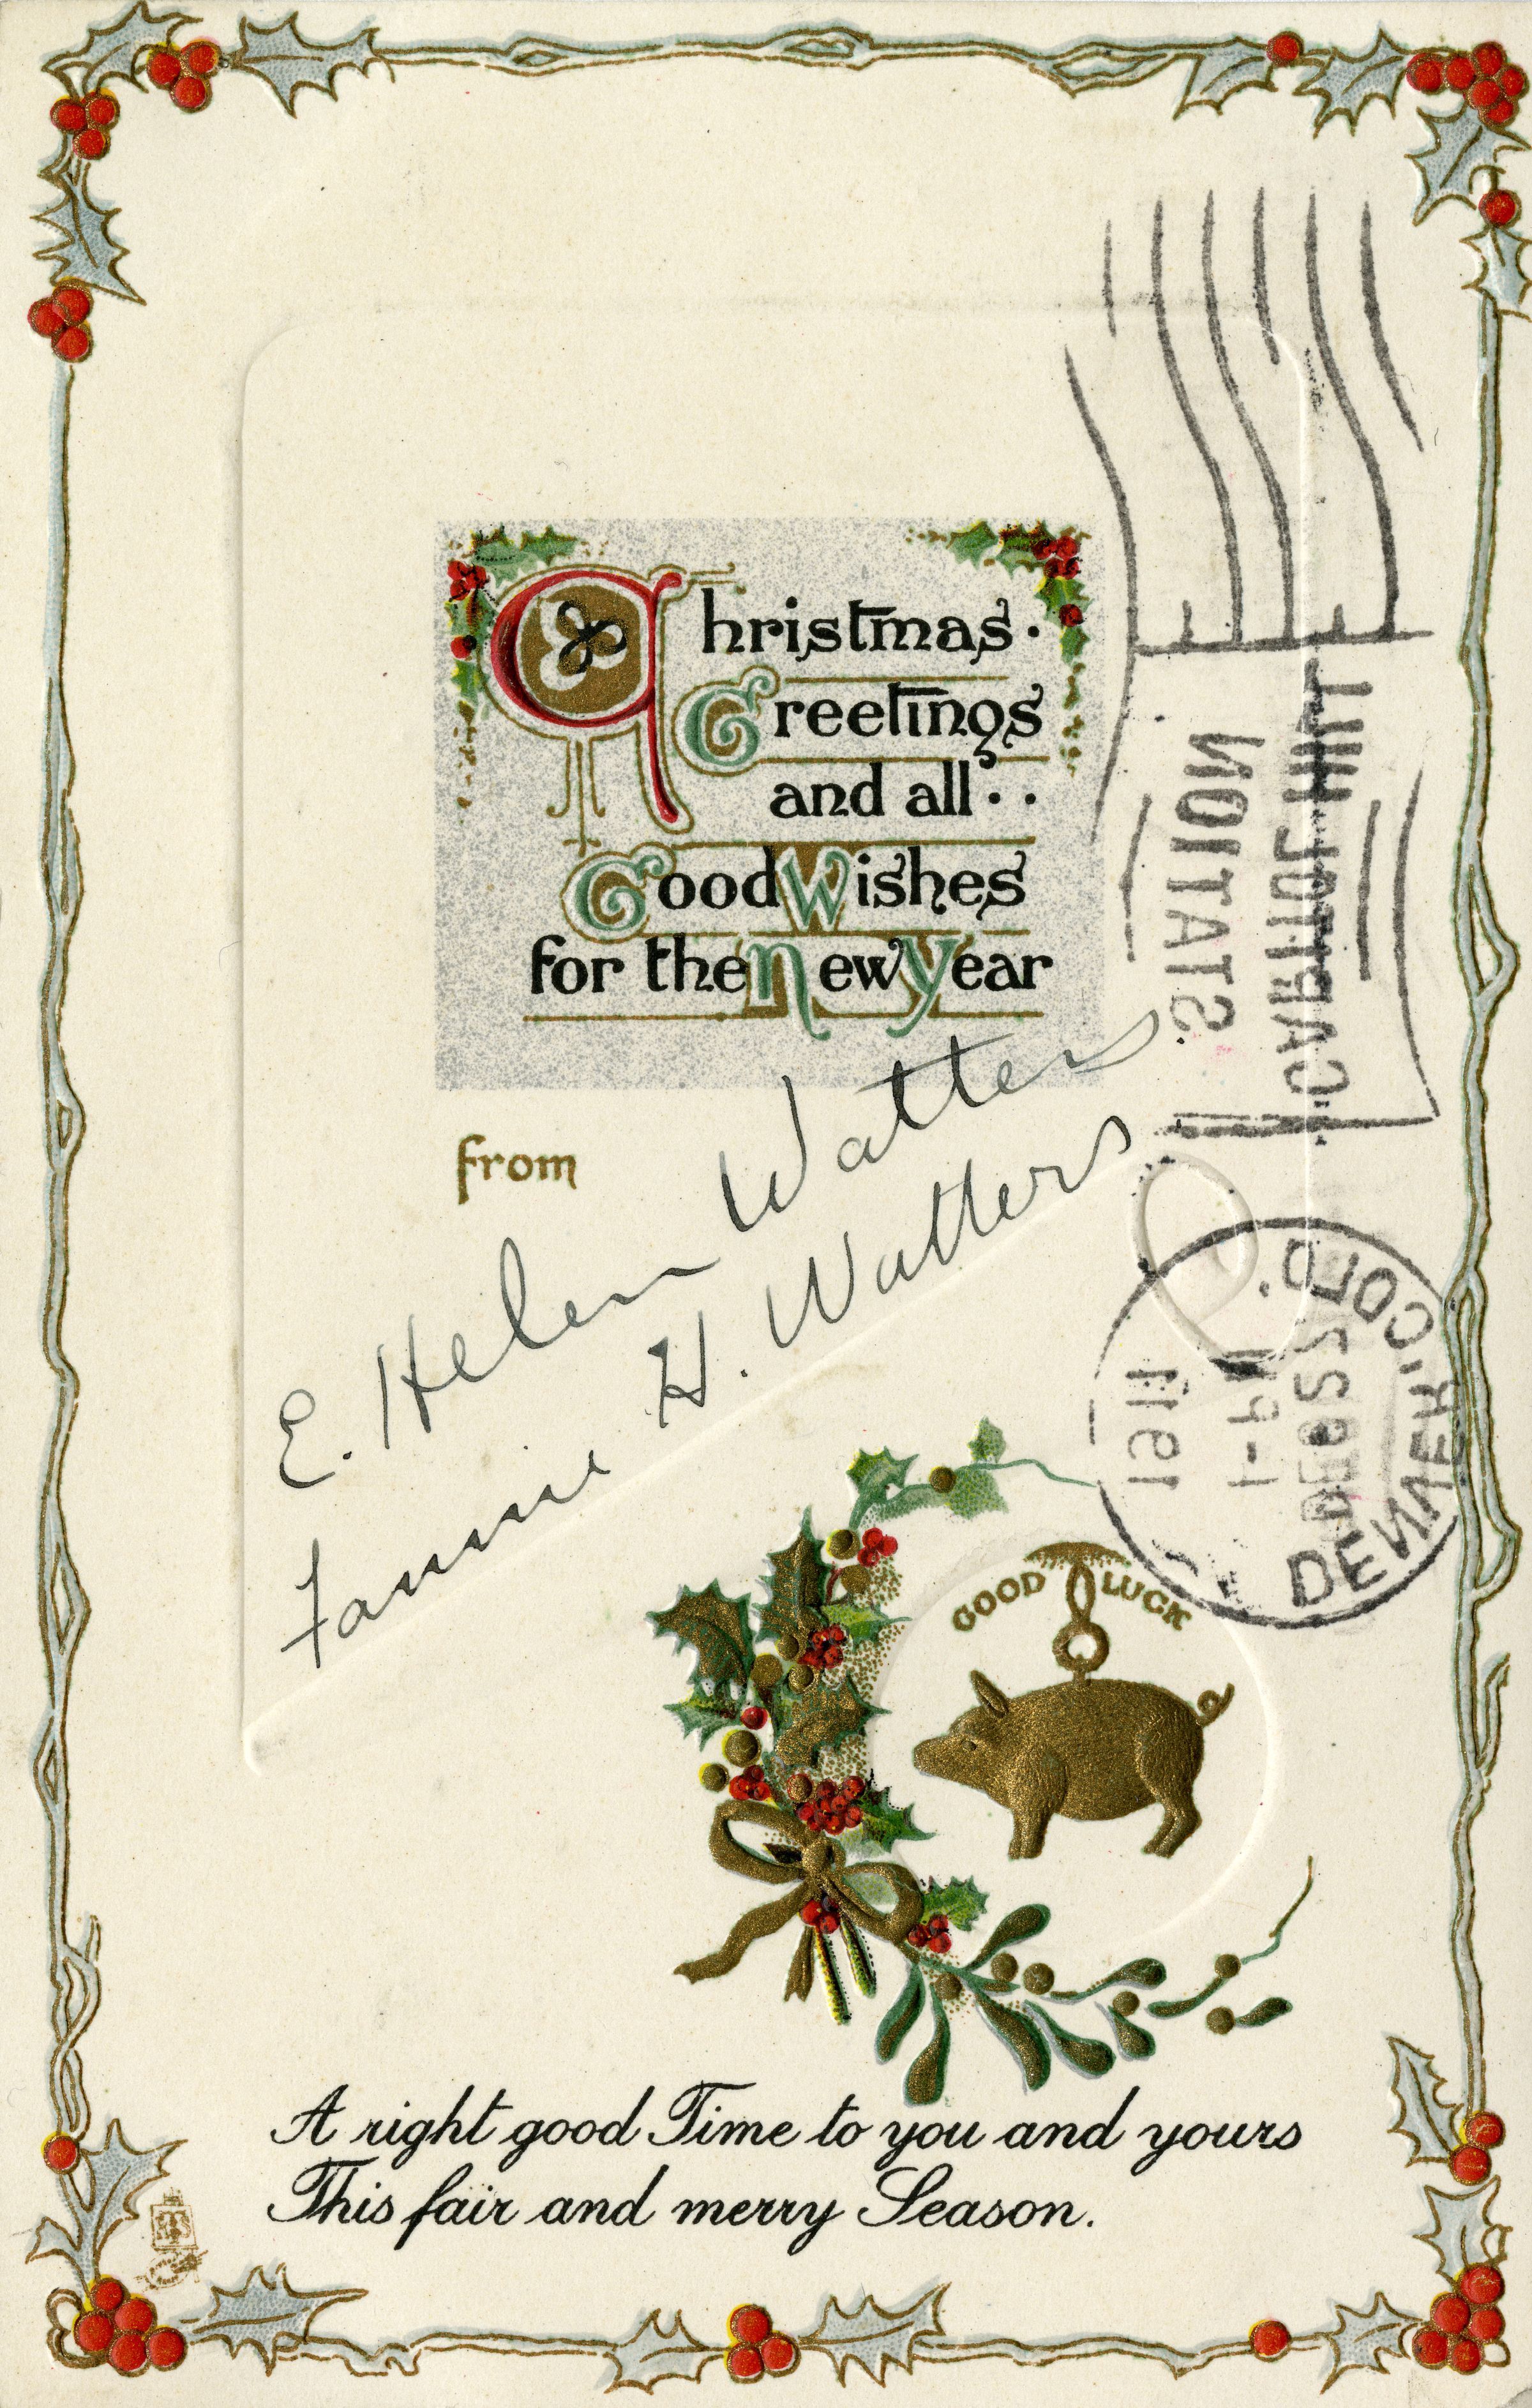 Christmas.
Greetings
and all..
Good Wishes
for the New Year
from
E. Helen Watters
Fannie H. Watters
CAPITOL HILL
STATION
DENVER, COLO.
DEC 22
1-PM
1911
GOOD LUCK
A right good Time to you and yours
This fair and merry Season.